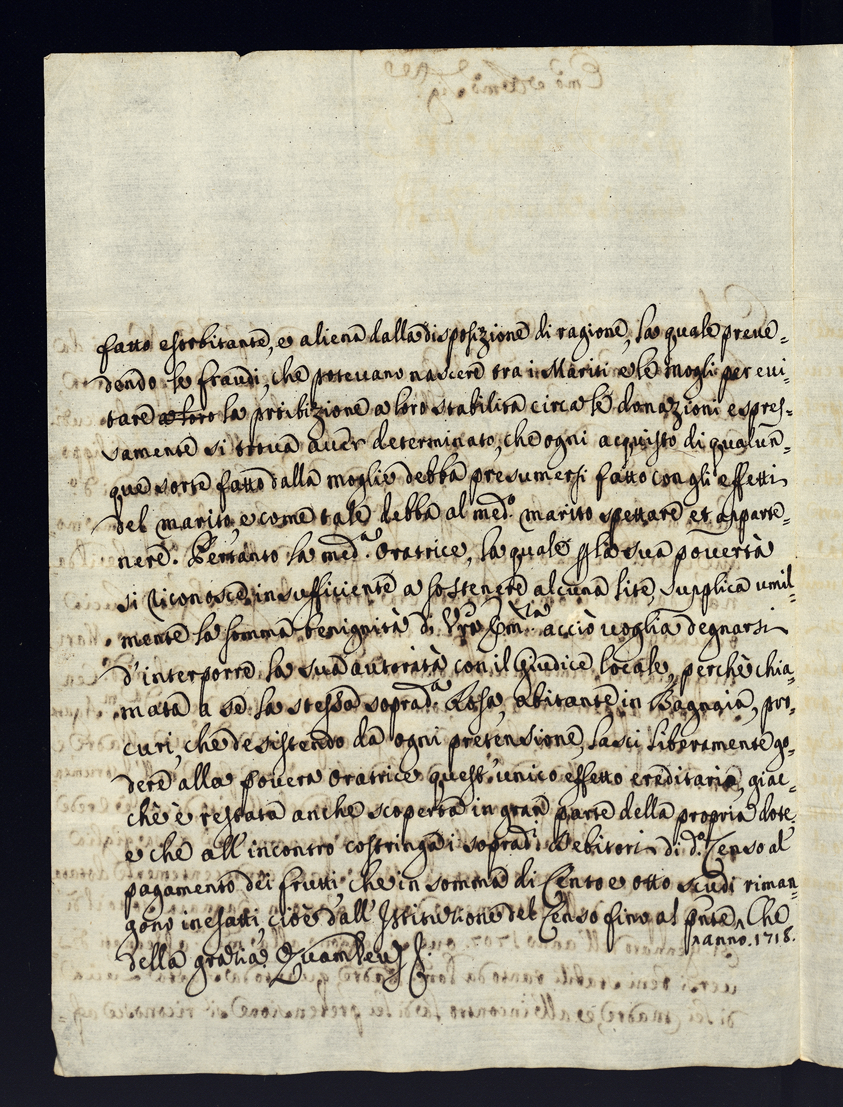 fatto esorbitante, e aliena dalla disposizione di ragione, la quale preve-
dendo le fraudi, che potevano nascere tra i Mariti e le Mogli per evi-
tare a loro la proibizione a loro stabilita circa le donazioni espres-
samente si trova aver determinato, che ogni acquisto di qualun-
que sorte fatto dalla moglie debba presumersi fatto con gli effetti
del marito, e come tale debba al med.º marito spettare et apparte-
nere. Pertanto la med.ª Oratrice, la quale p la sua povertà
si riconosce insufficiente a sostenere alcuna lite, supplica umil-
mente la somma benignità di Vra Em.za acciò voglia degnarsi
d'interporre la sua autorità con il Giudice locale, perchè chia-
mata a sè la stessa soprad.ª Rosa, abitante in Bagnaia, pro-
curi, che desistendo da ogni pretensione, lasci liberamente go-
dere alla povera Oratrice quest'unico effetto ereditario, giac-
chè è restata anche scoperta in gran parte della propria dote,
e che all'incontro costringa i soprad.i Debitori di d.º Censo al
pagamento dei frutti, che in somma di Cento e otto scudi riman-
gono inesatti, cioè dall'Istituzione del Censo fino al pnte ^ Che
anno 1718.
della grazia Quam Deus